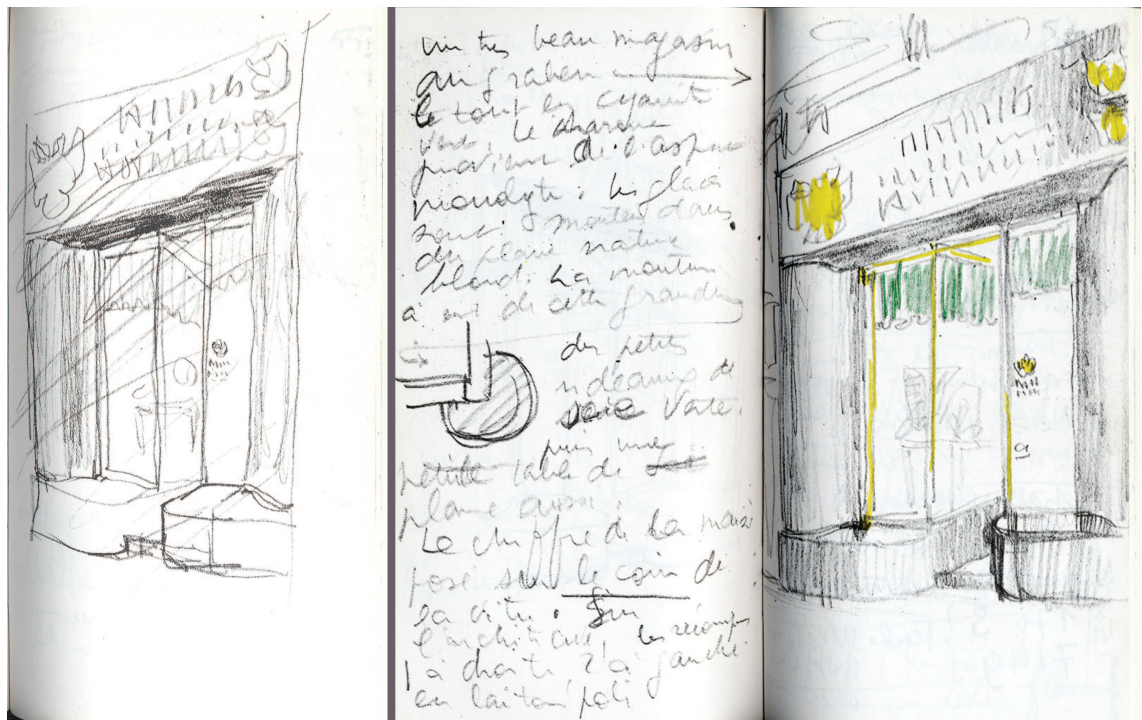 un très beau magasin
au graben
le tout en cyanite
verte, le charme
provient de l'aspect
monolyte : les glaces
sont montées dans
du plane nature
blond. La mouture
a de cette grandeur
des petits
rideaux de
soie verte.
puis une
petite table de
plane aussi.
Le chiffre de la maison
posé sur le coin de
la vitre. Sur
l'architrave, les récomp
1 à droite, 2 à gauche
en laiton poli